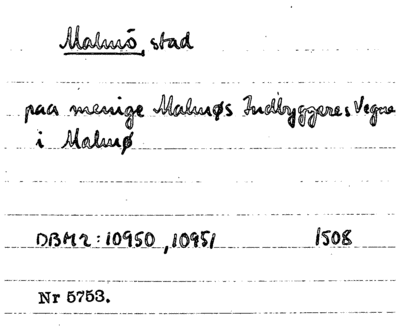 Malmö, stad
paa menige Malmøs Indbyggeres Vegne
i Malmø
DBM2: 10950, 10951 1508
Nr 5753.